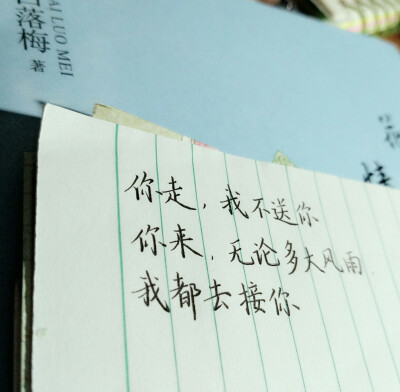 白落梅 著
AI LUO MEI
你走，我不送你
你来，无论多大风雨
我都去接你